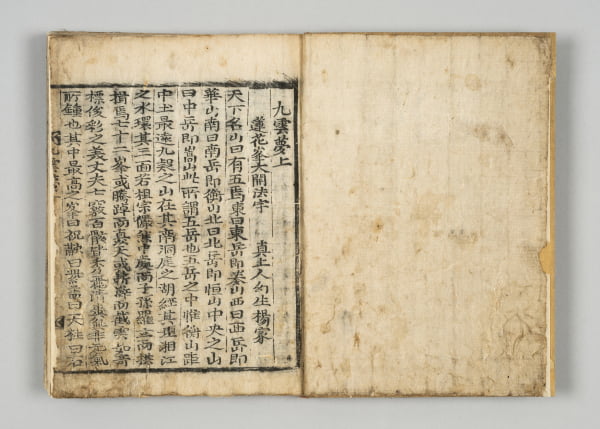 九雲夢上
蓮花峯大開法宇 真上人幻生楊家
天下名山曰有五焉東曰東岳即泰山西曰西岳即
華山南曰南岳即衡山北曰北岳即恒山中央之山
曰中岳即嵩山此所謂五岳也五岳之中惟衡山距
中土最遠九疑之山在其南洞庭之湖經其北湘江
之水環其三面若祖宗儼然中處而子孫羅立而拱
揖焉七十二峯或騰踔而矗天或嶄嶭而截雲如奇
標俊彩之美丈夫七竅百骸皆秀清淑無非元氣
所鍾也其中最高之峯曰祝融曰紫盖曰天柱曰石